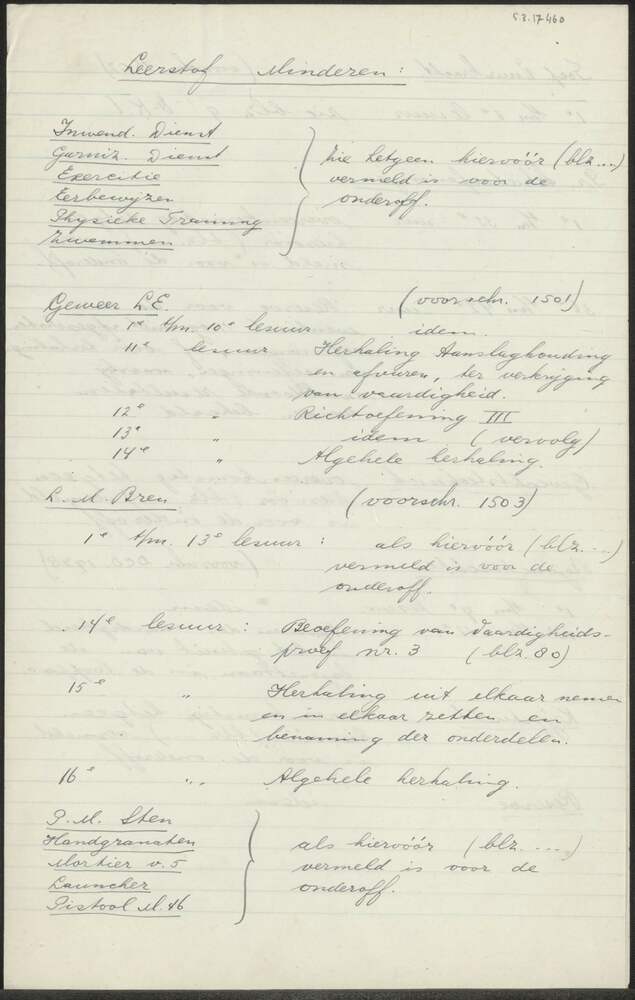 S.8.17460
Leerstof Minderen :
Inwend. Dienst
Garniz. Dienst
Exercitie
Eerbewijzen
Physieke Training
Zwemmen
zie hetgeen hiervóór (blz....)
vermeld is voor de
onderoff.
Geweer L.E. (voorschr. 1501)
1e t/m. 10e lesuur idem
11e lesuur Herhaling Aanslaghouding
en afvuren, ter verkrijging
van vaardigheid.
12e " Richtoefening III
13e " idem (vervolg)
14e " Algehele herhaling.
L. M. Bren (voorschr. 1503)
1e t/m. 13e lesuur : als hiervóór (blz....)
vermeld is voor de
onderoff.
14e lesuur : Beoefening van Vaardigheids-
proef nr. 3 (blz. 80)
15e " Herhaling uit elkaar nemen
en in elkaar zetten en
benaming der onderdelen.
16e " Algehele herhaling.
P. M. Sten
Handgranaten
Mortier v. 5
Launcher
Pistool M. 46
als hiervóór (blz.....)
vermeld is voor de
onderoff.